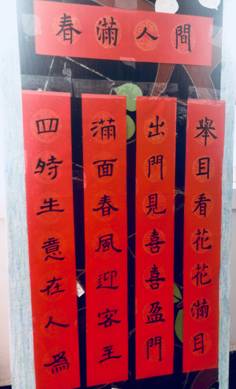 春滿人間
舉目看花花滿目
出門見喜喜盈門
滿面春風迎客至
四時生意在人為